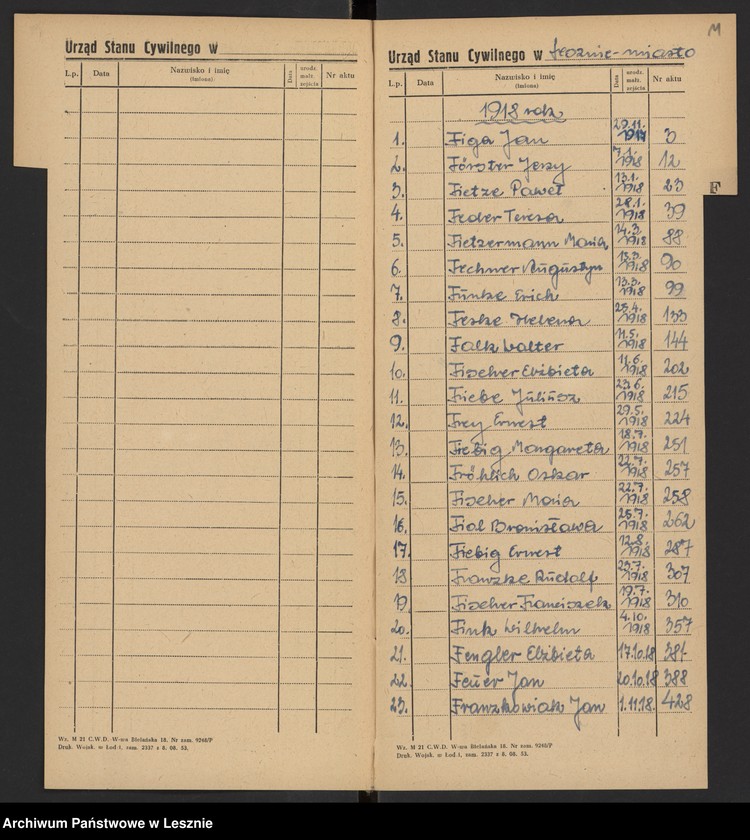 Urząd Stanu Cywilnego w
L.p. Data Nazwisko i imię (imiona) Data urodz. małż. zejścia Nr aktu
Wz. M 21 C.W.D. W-wa Bielańska 18. Nr zam. 9248/P
Druk. Wojsk. w Łodzi, zam. 2337 z 8. 08. 53.
M
Urząd Stanu Cywilnego w miasto
L.p. Data Nazwisko i imię (imiona) Data urodz. małż. zejścia Nr aktu
1918 rok
1. Figa Jan 29.11. 1917 3
2. Förster Jerzy 7.1. 1918 12
3. Fietze Paweł 13.1. 1918 23
4. Feder Teresa 28.1. 1918 39
5. Fietzermann Maria 14.3. 1918 88
6. Fechner Augustyn 13.3. 1918 90
7. Funke Erich 13.3. 1918 99
8. Feske Helena 25.4. 1918 133
9. Falk Walter 11.5. 1918 144
10. Fischer Elżbieta 11.6. 1918 202
11. Fiebe Juliusz 23.6. 1918 215
12. Frey Ernest 29.5. 1918 224
13. Fiebig Margareta 18.7. 1918 251
14. Fröhlich Oskar 22.7. 1918 257
15. Fischer Maria 22.7. 1918 258
16. Fial Bronisława 25.7. 1918 262
17. Fiebig Ernest 12.8. 1918 287
18 Franzke Rudolf 23.7. 1918 307
19 Fischer Franciszek 19.7. 1918 310
20. Fink Wilhelm 4.10. 1918 357
21. Fengler Elżbieta 17.10.18 381
22. Feuer Jan 20.10.18 388
23. Franzkowiak Jan 1.11.18. 428
F
Wz. M 21 C.W.D. W-wa Bielańska 18. Nr zam. 9248/P
Druk. Wojsk. w Łodzi, zam. 2337 z 8. 08. 53.
Archiwum Państwowe w Lesznie